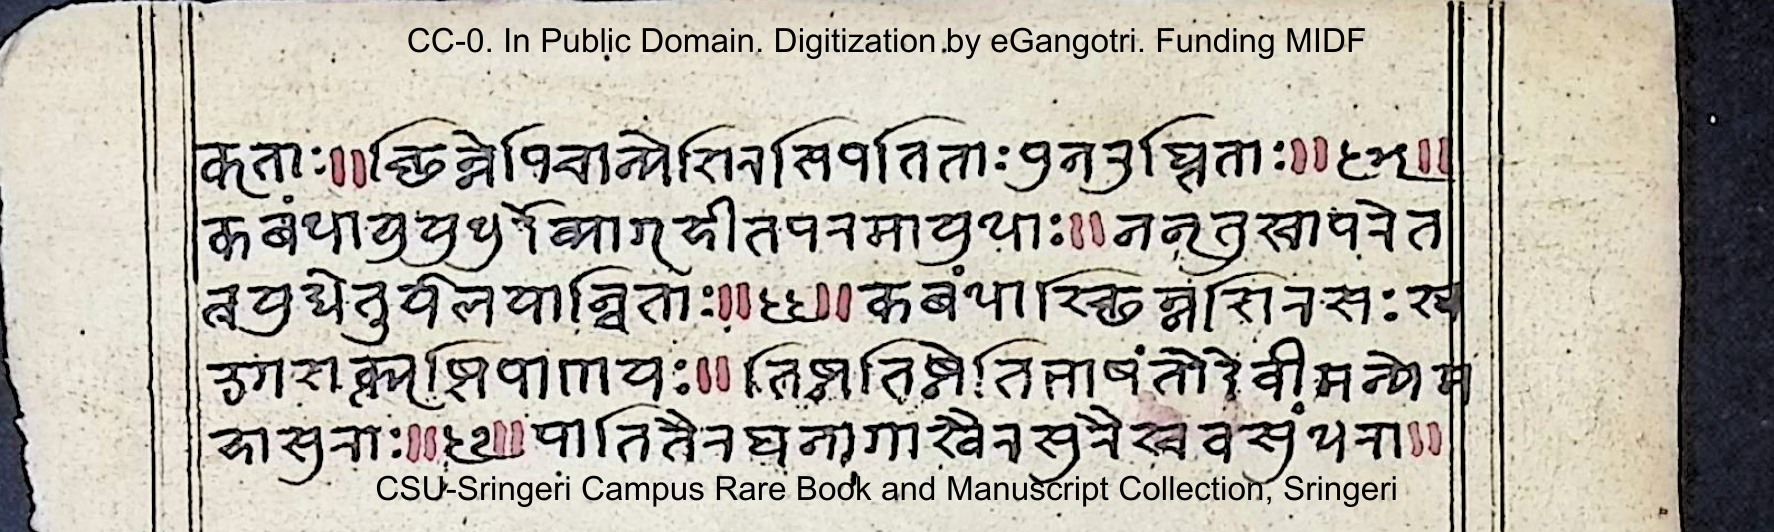 CC-0. In Public Domain. Digitization by eGangotri. Funding MIDF
कृताः॥छिन्नेपिचान्येशिरसिपतिताःपुनरुत्थिताः॥६५॥
कबंधायुयुधुर्देव्यागृहीतपरमायुधाः॥ननृतुश्चापरेत
त्रयुद्धेतुर्यलयान्विताः॥६६॥कबंधाश्छिन्नशिरसःख
ड्गशक्त्यृष्टिपाणयः॥तिष्ठतिष्ठेतिभाषंतोदेवीमन्येम
हासुराः॥६७॥पातितैरथनागाश्वैरसुरैश्चवसुंधरा॥
CSU-Sringeri Campus Rare Book and Manuscript Collection, Sringeri